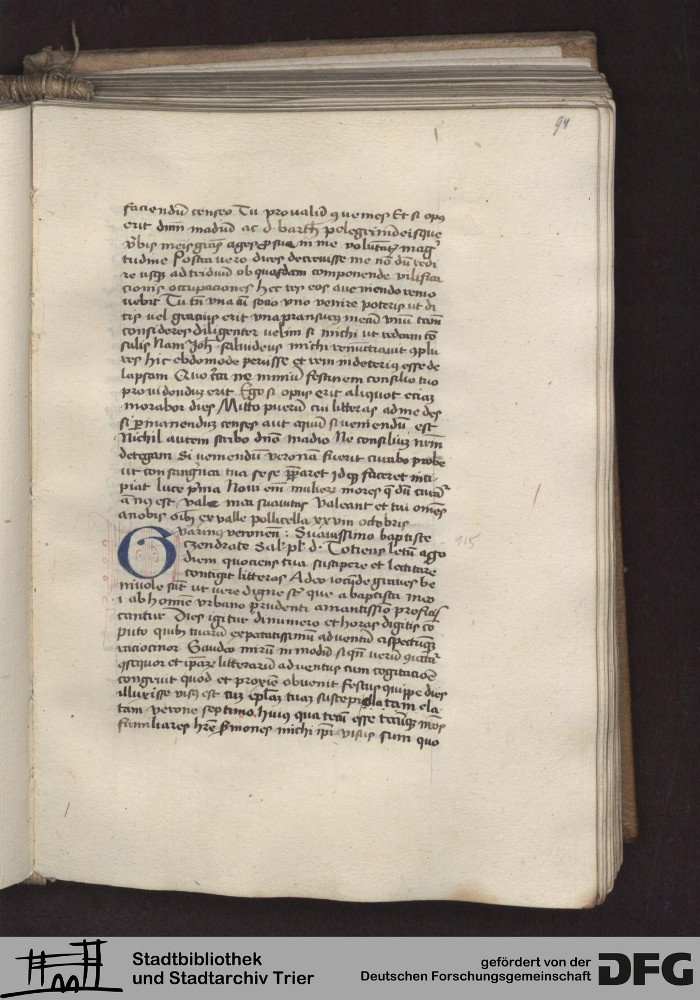 94
faciendū censeo Tu pro valid quemes Et si opus
erit dnm madiū ac d. barth pelegrini deisque
vbis meis gras ages p sua in me volūtat mag
tudine Postea vero dices decrevisse me nō dū redi
re usq ad triduū ob quasdam componende vilificat
cionis occupaciones hec res eos ave niendo remo
vebit Tu tn una cū socio uno venire poteris ut di
cis vel gracius erit una pransurus mecū unū tam
consideres diligenter velim si michi ut redeam cō
sulis Nam Joh. salvideus michi renuncravit cplu
res hic ebdomode perisse et rem in deterius esse de
lapsam Quo circa ne nimiū festinem consilio tuo
providendum erit Ego si opus erit aliquot eciam
morabor dies Mitto puerum cui litteras ad me des
si permanendum censes aut quid si veniendū est
Nichil autem scribo dno madio Ne consilium nrm
detegam Si veniendū veronam fuerit curabo probe
ut consanguinea tua sese pparet idq faceret inci
piat luce pma Novi em muliers mores q dū
nus est vale mea suavitas Valeant et tui omnes
a nobis oibus ex valle pollicella xxviii octobris
Guarinus veronen: Suavissimo baptiste
115
Czendrate Sal. pl. d. Totiens letū ago
diem quociens tua suscipere et lectitare
contigit litteras Adeo iocunde graves be
nivole sūt ut vere digne st que a baptista meo
i ab homine urbano prudenti amantissio proficis
cantur Dies igitur dinumero et horas digitis cō
puto quibus tuarū expectatissimum adventū aspectumq
raciocinor Gaudeo mirū in modū siqn verū
assequor et ipare litterarū adventus cum cogitacioē
congruit quod et proxime obvenit festus quippe dies
illuxisse visus est cum eplam tuam suscepi allatam
tam verone septimo huius qua tecū esse tecumq meos
familiares hre sermones michi ipi visus sum quo
Stadtbibliothek
und Stadtarchiv Trier
gefördert von der
Deutschen Forschungsgemeinschaft
DFG